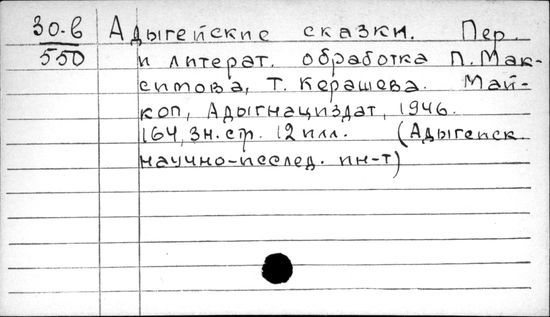 30-6 Адыгейские сказки. Пер.
550 и литерат. обработка П. Мак-
симова, Т. Керашева. Май-
коп, Адыгнациздат, 1946.
164, 3н. стр. 12 илл. (Адыгейск.
научно-исслед. ин-т)